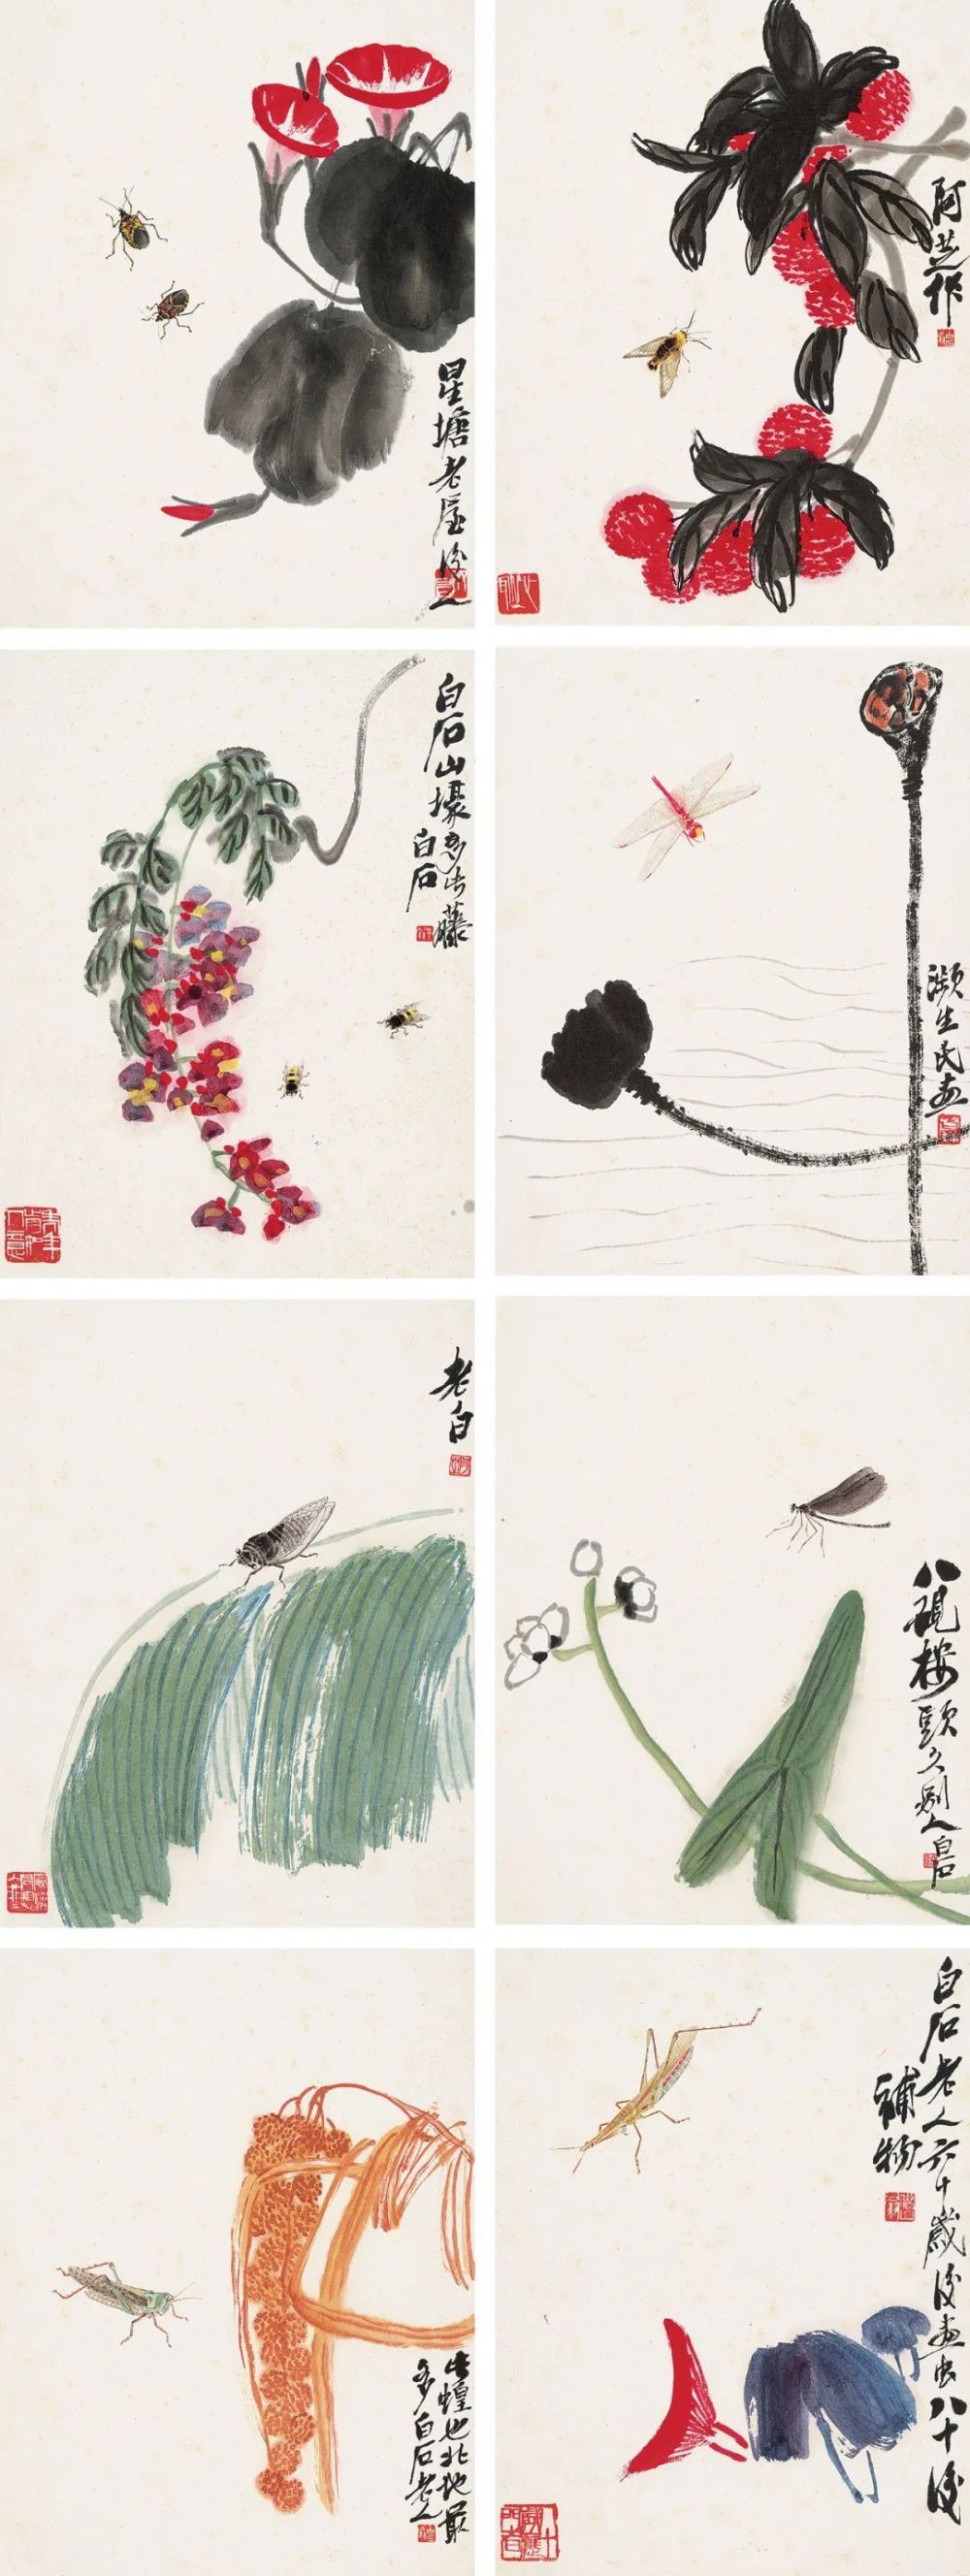 星塘老屋後人
阿芝作
白石山塢多此藤
白石
瀕生氏画
老白
八硯樓頭久別人白石
此蝗也北地最
多白石老人
白石老人六十歲後畫虫八十後
補物